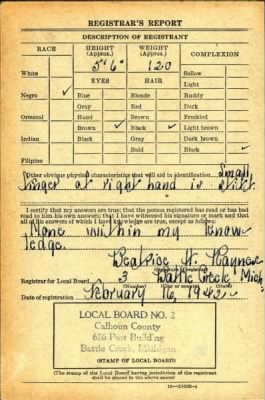 REGISTRAR'S REPORT
DESCRIPTION OF REGISTRANT
RACE HEIGHT (Approx.) WEIGHT (Approx.) COMPLEXION
5' 6" 120
White Sallow
EYES HAIR Light
Negro ✓ Blue Blonde Ruddy
Gray Red Dark
Oriental Hazel Brown Freckled
Brown ✓ Black ✓ Light brown
Indian Black Gray Dark brown
Bald Black ✓
Filipino
Other obvious physical characteristics that will aid in identification Small
finger at right hand is stiff.
I certify that my answers are true; that the person registered has read or has had
read to him his own answers; that I have witnessed his signature or mark and that
all of his answers of which I have knowledge are true, except as follows:
None within my know-
ledge.
Beatrice H. Haynes
Registrar for Local Board 3 Battle Creek Mich
(Number) (City or county) (State)
Date of registration February 16, 1942
LOCAL BOARD NO. 2
Calhoun County
626 Post Building
Battle Creek, Michigan
(STAMP OF LOCAL BOARD)
(The stamp of the Local Board having jurisdiction of the registrant
shall be placed in the above space)